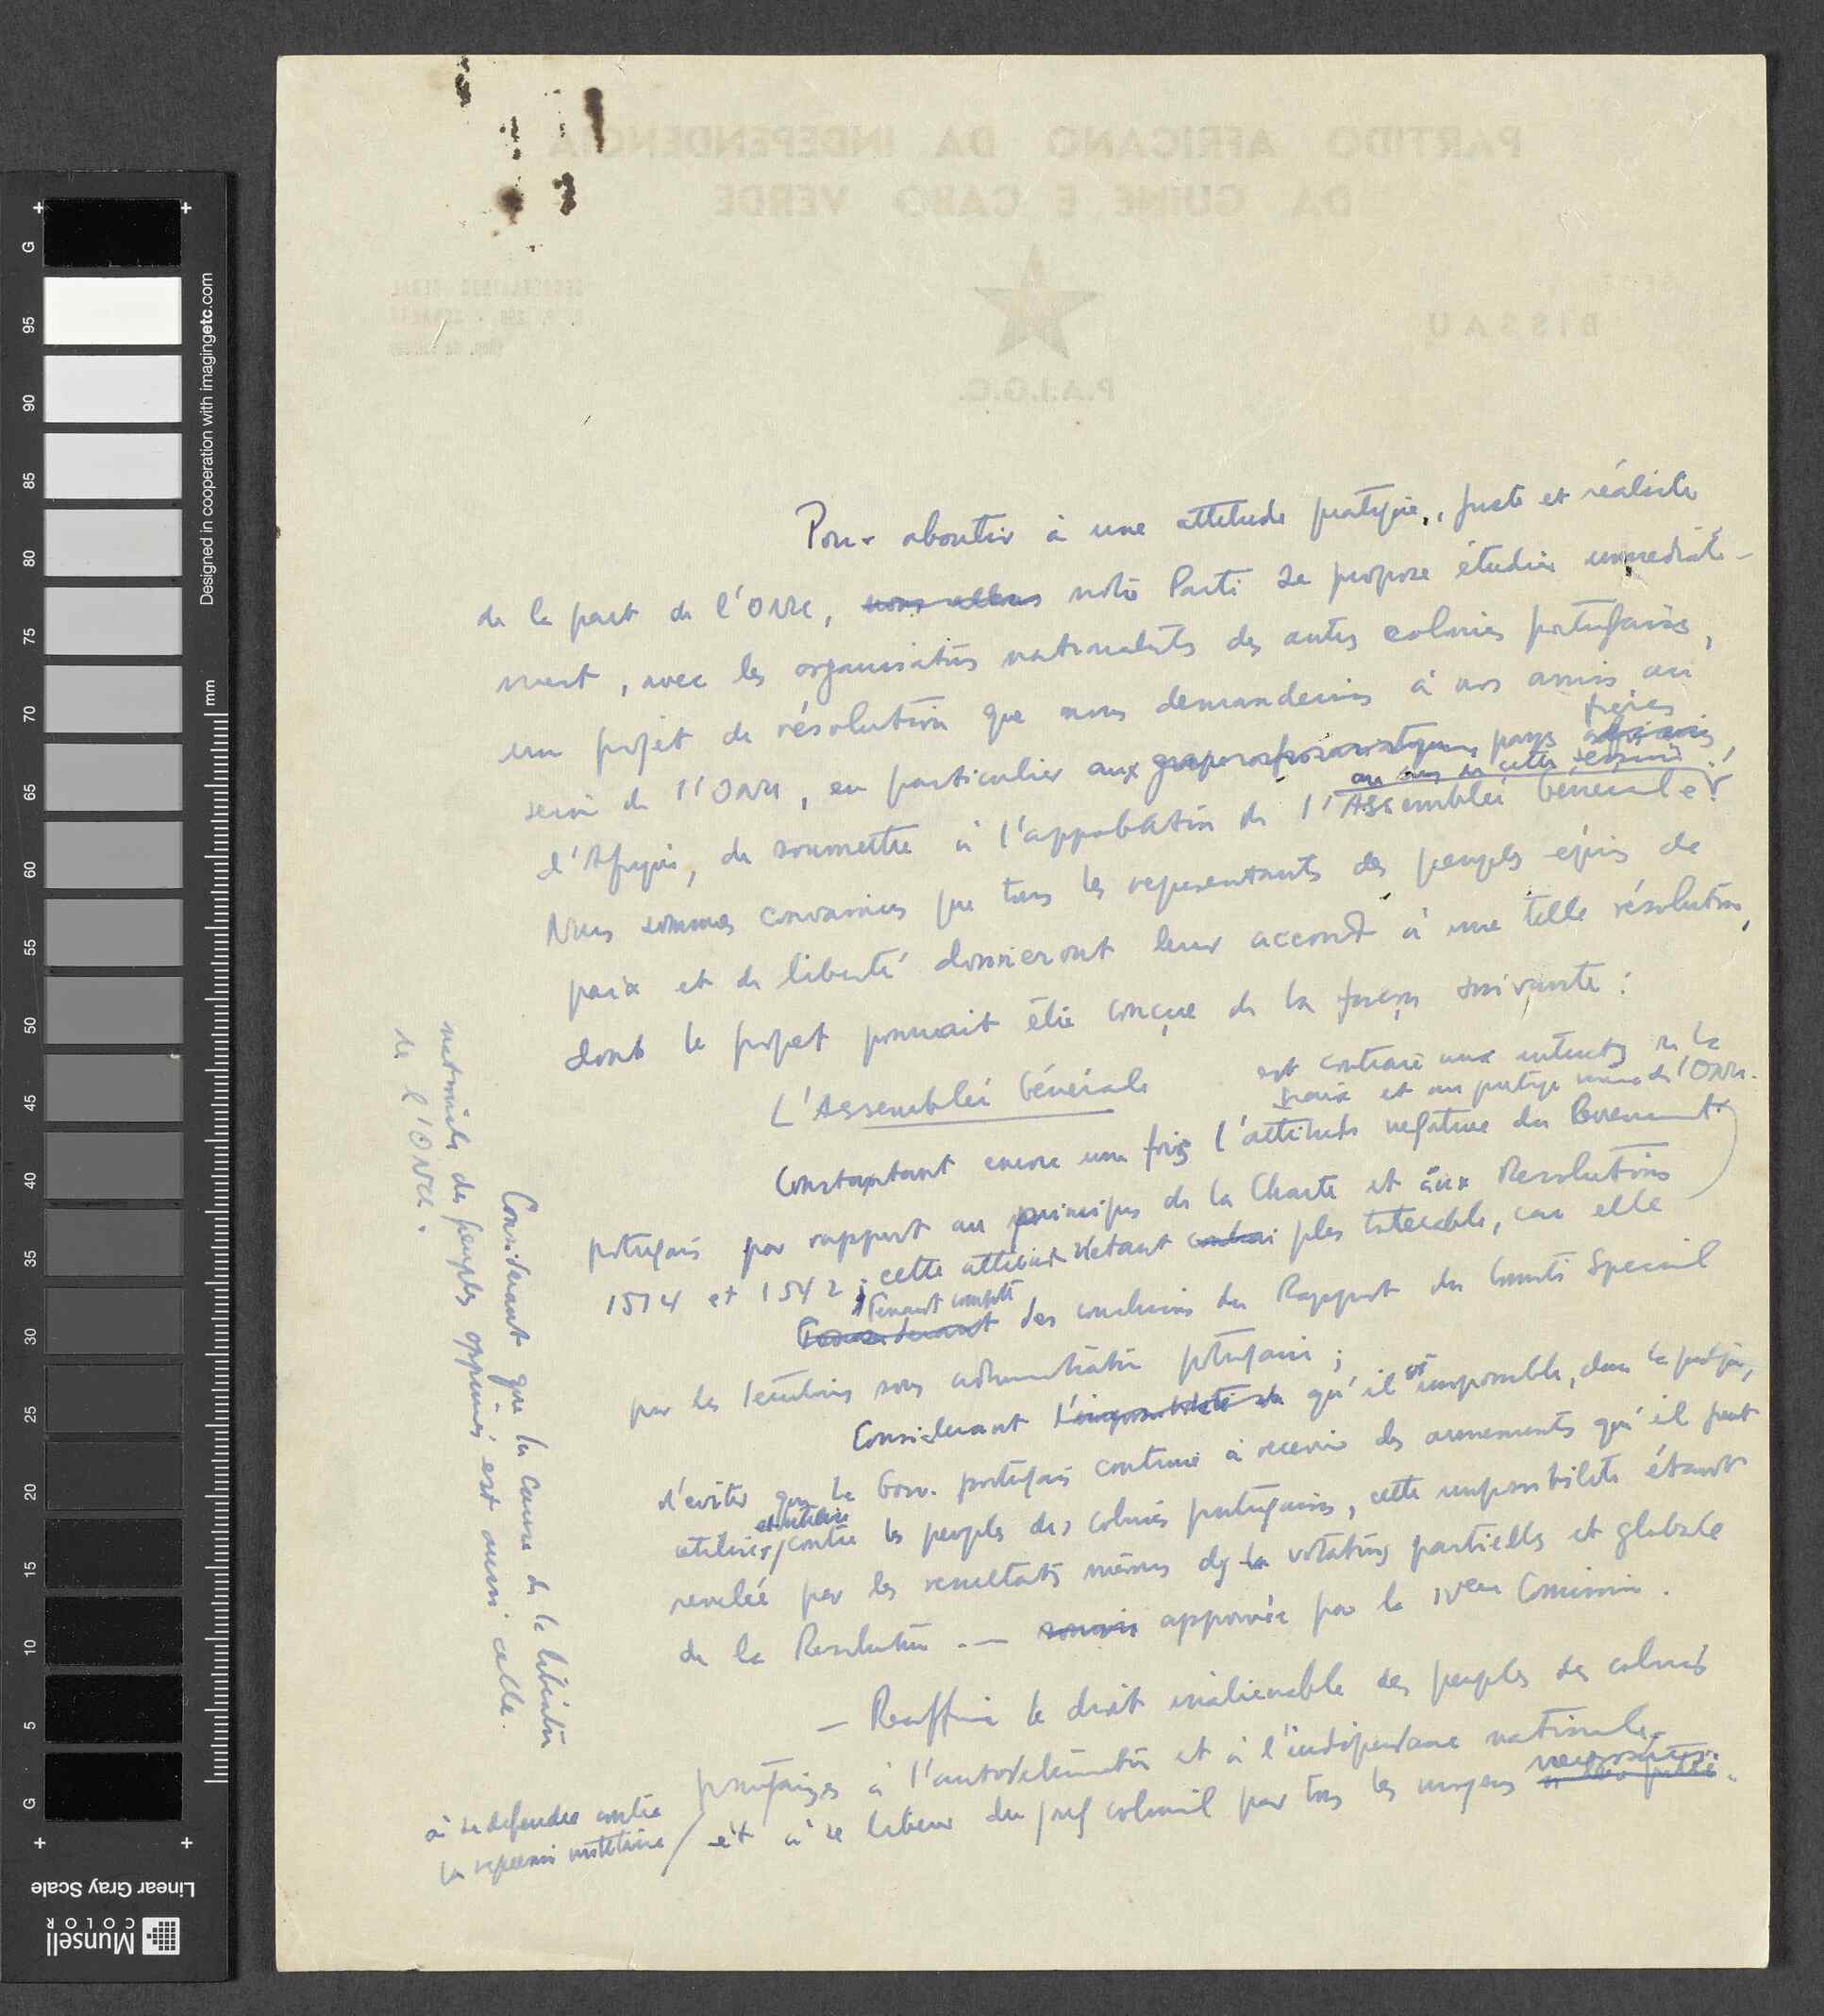 PARTIDO AFRICANO DA INDEPENDENCIA
DA GUINE E CABO VERDE
BISSAU
P.A.I.G.C.
Pour aboutir à une attitude pratique, juste et réaliste
de la part de l'ONU, nous allons notre Parti se propose étudier immédiate-
ment, avec les organisations nationalistes des autres colonies portugaises,
un projet de résolution que nous demanderons à nos amis au
sein de l'ONU, en particulier aux pays frères
d'Afrique, de soumettre à l'approbation de l'Assemblée Générale
au cours de cette session.
Nous sommes convaincus que tous les representants des peuples épris de
paix et de liberté donneront leur accord à une telle résolution,
dont le projet pourrait être conçue de la façon suivante :
L'Assemblée Générale
Constatant encore une fois l'attitude negative du Gouvernement
est contraire aux interets de la
paix et au prestige même de l'ONU.
portugais par rapport au principes de la Charte et aux Resolutions
1514 et 1542 ; cette attitude n'etant plus tolerable, car elle
Considerant Tenant compte des conclusions du Rapport du Comité Special
pour les territoires sous administration portugaise ;
Considerant l'impossibilité de qu'il est impossible, dans la pratique,
d'eviter que le Gouv. portugais continue à recevoir des armements qu'il peut
utiliser, et utilise contre les peuples des colonies portugaises, cette impossibilité étant
revelée par les resultats mêmes des la votations partielles et globale
de la Resolution .— approuvée par la IVeme Comission.
— Reaffirme le droit inalienable des peuples des colonies
portugaises à l'autodetermination et à l'independance nationale
à se defendre contre
la repression militaire / et à se liberer du joug colonial par tous les moyens necessaires.
Considerant que la cause de la liberation
nationale des peuples opprimés est aussi celle
de l'ONU.